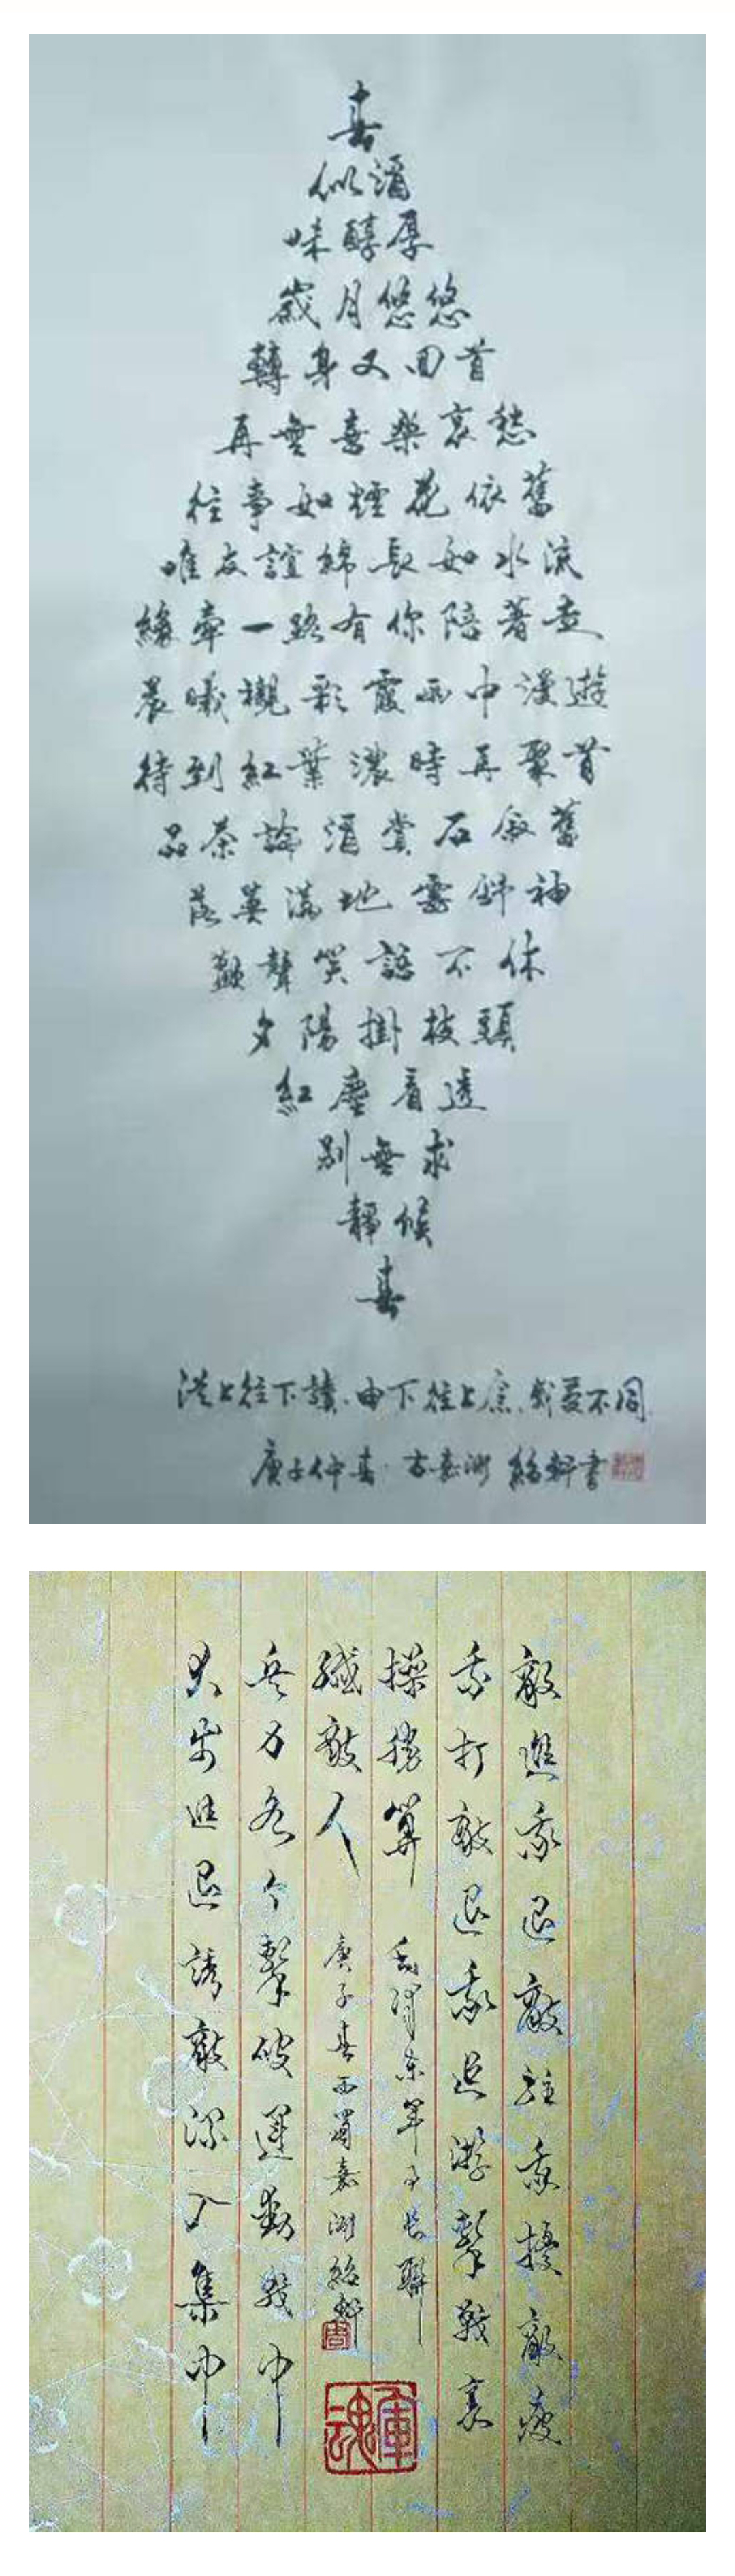 春
似酒
味醇厚
歲月悠悠
轉身又回首
再無喜樂哀愁
往事如煙花依舊
唯友誼綿長如水流
緣牽一路有你陪著走
晨曦襯彩霞雨中漫遊
待到紅葉濃時再聚首
品茶論酒賞石敘舊
落英滿地袖
歡聲笑語不休
夕陽掛枝頭
紅塵看透
別無求
靜候
春
從上往下讀.由下往上讀.感受不同
庚子仲春 古嘉州 軒書
敵進我退敵駐我擾敵疲
我打敵退我追游擊戰裏
操勝算
毛澤東軍事長聯
大步進退誘敵深入集中
兵力各个擊破運動戰中
殲敵人
庚子春西蜀嘉州軒
軍魂